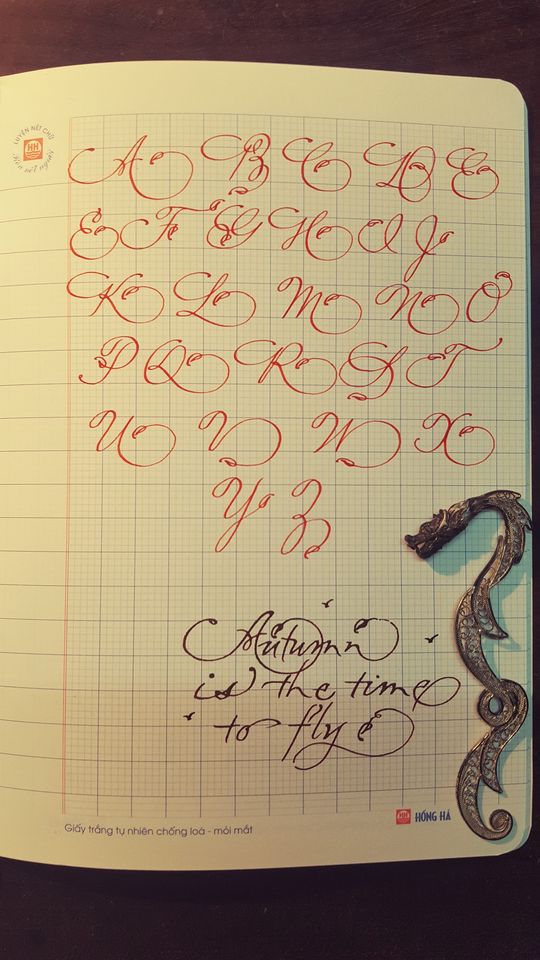 LUYỆN NÉT CHỮ
HH
A B C D E
E F G H I J
K L M N O
P Q R S T
U V W X
Y Z
Autumn
is the time
to fly
HH HỒNG HÀ
Giấy trắng tự nhiên chống loá - mỏi mắt